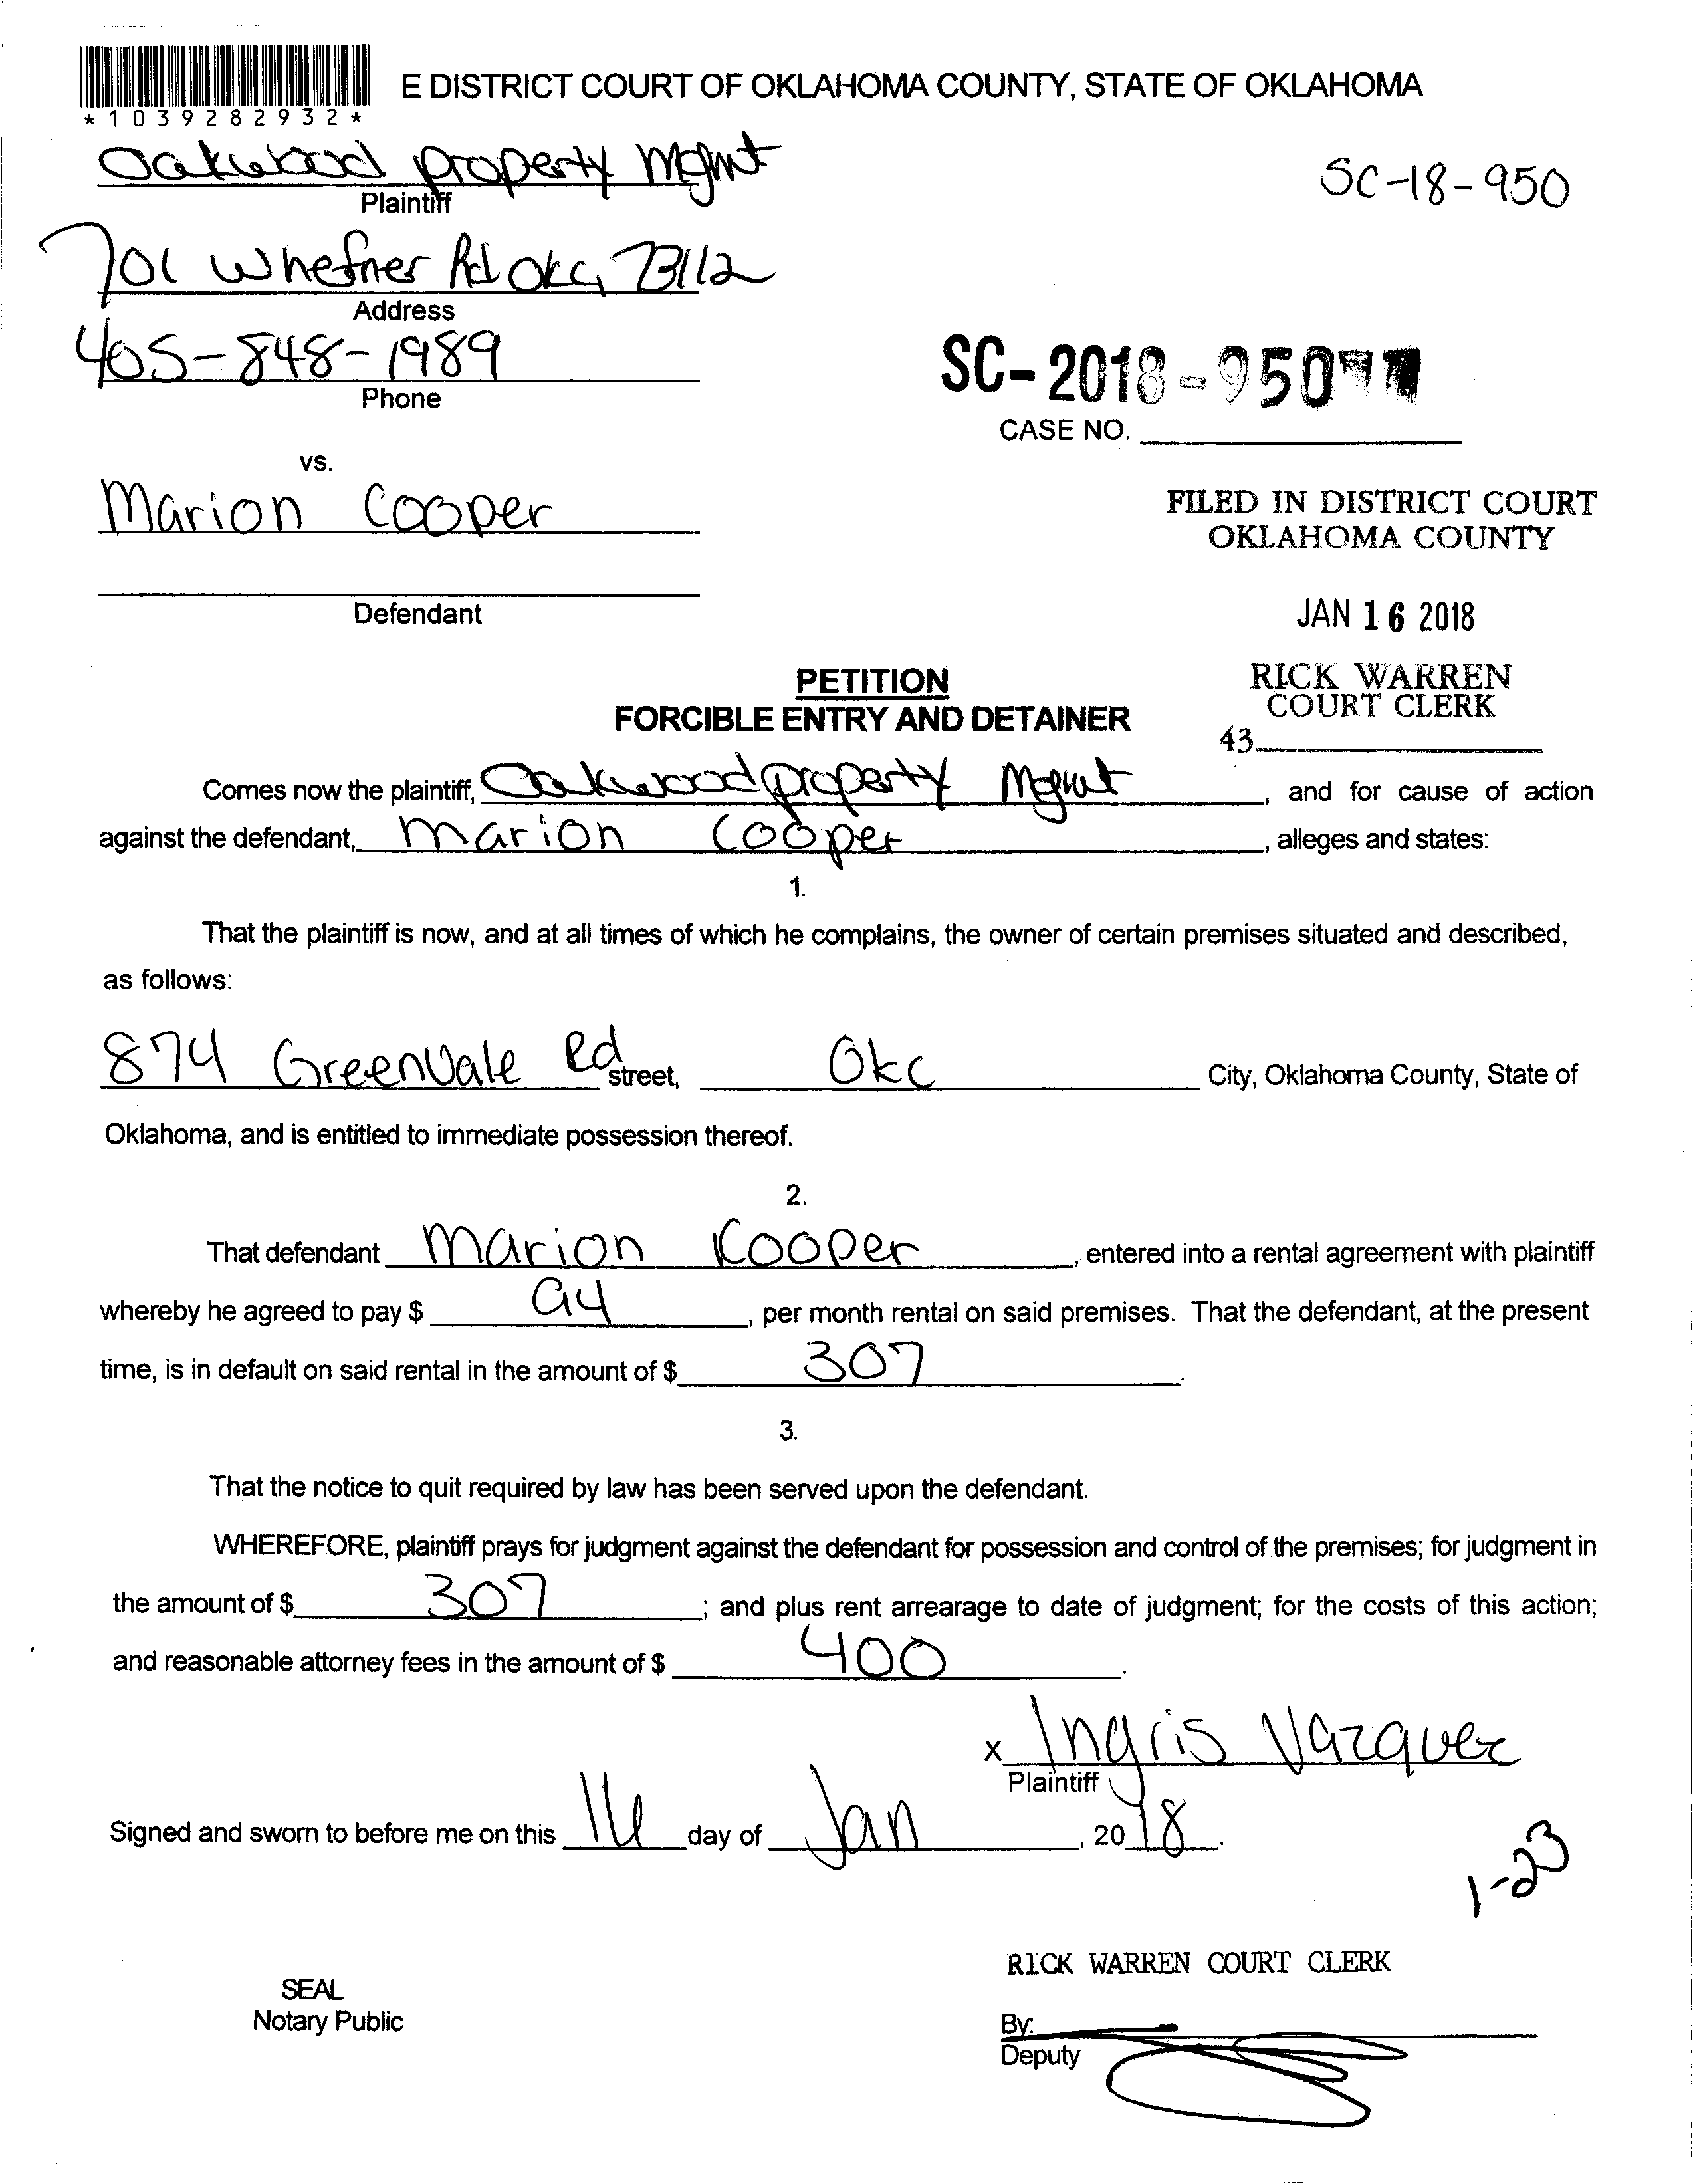 E DISTRICT COURT OF OKLAHOMA COUNTY, STATE OF OKLAHOMA
*1039282932*
Oakwood property Mgmt
SC-18-950
Plaintiff
701 Whefner Rd OKC, 73112
Address
405-848-1989
Phone
SC-2018-950
CASE NO.
vs.
Marion Cooper
FILED IN DISTRICT COURT
OKLAHOMA COUNTY
Defendant
JAN 16 2018
PETITION
FORCIBLE ENTRY AND DETAINER
RICK WARREN
COURT CLERK
43
Comes now the plaintiff, Oakwood property Mgmt, and for cause of action
against the defendant, Marion Cooper, alleges and states:
1.
That the plaintiff is now, and at all times of which he complains, the owner of certain premises situated and described,
as follows:
874 Greenvale Rd street, Okc City, Oklahoma County, State of
Oklahoma, and is entitled to immediate possession thereof.
2.
That defendant Marion Cooper, entered into a rental agreement with plaintiff
whereby he agreed to pay $ 94, per month rental on said premises. That the defendant, at the present
time, is in default on said rental in the amount of $ 307.
3.
That the notice to quit required by law has been served upon the defendant.
WHEREFORE, plaintiff prays for judgment against the defendant for possession and control of the premises; for judgment in
the amount of $ 307; and plus rent arrearage to date of judgment; for the costs of this action;
and reasonable attorney fees in the amount of $ 400.
x Ingris Vazquez
Plaintiff
Signed and sworn to before me on this 16 day of Jan, 2018.
1-23
RICK WARREN COURT CLERK
SEAL
Notary Public
By:
Deputy